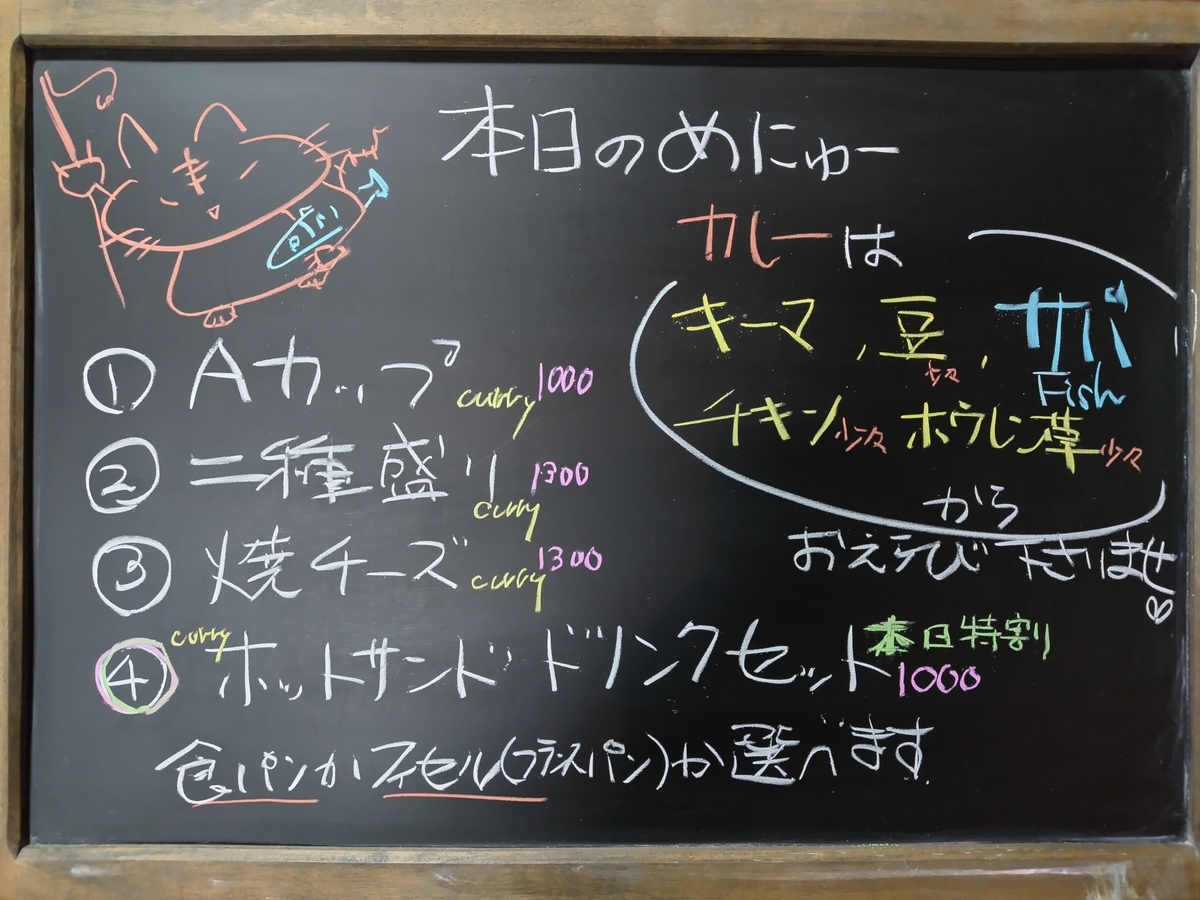 本日のめにゅー
カレーは
キーマ, 豆少々, サバ Fish
チキン少々 ホウレン草少々
から
おえらび下さいませ♡
① Aカップ curry 1000
② 二種盛り curry 1300
③ 焼チーズ curry 1300
④ curry ホットサンド ドリンクセット 本日特割 1000
食パンかフィセル(フランスパン)か選べます